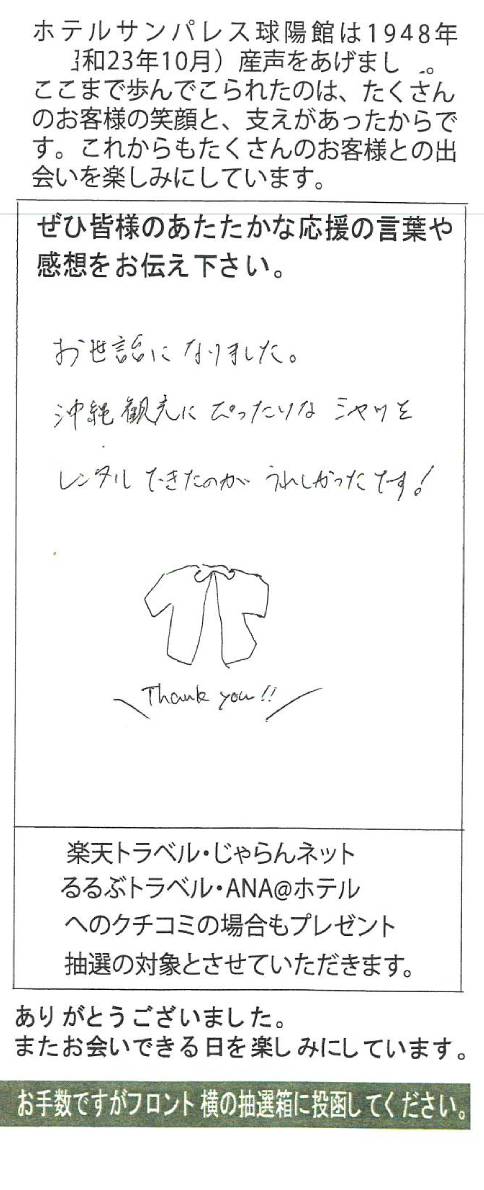 ホテルサンパレス球陽館は1948年
和23年10月）産声をあげまし 。
ここまで歩んでこられたのは、たくさん
のお客様の笑顔と、支えがあったからで
す。これからもたくさんのお客様との出
会いを楽しみにしています。
ぜひ皆様のあたたかな応援の言葉や
感想をお伝え下さい。
お世話になりました。
沖縄観光にぴったりな シャツを
レンタルできたのが うれしかったです!
Thank you!!
楽天トラベル・じゃらんネット
るるぶトラベル・ANA@ホテル
へのクチコミの場合もプレゼント
抽選の対象とさせていただきます。
ありがとうございました。
またお会いできる日を楽しみにしています。
お手数ですがフロント横の抽選箱に投函してください。